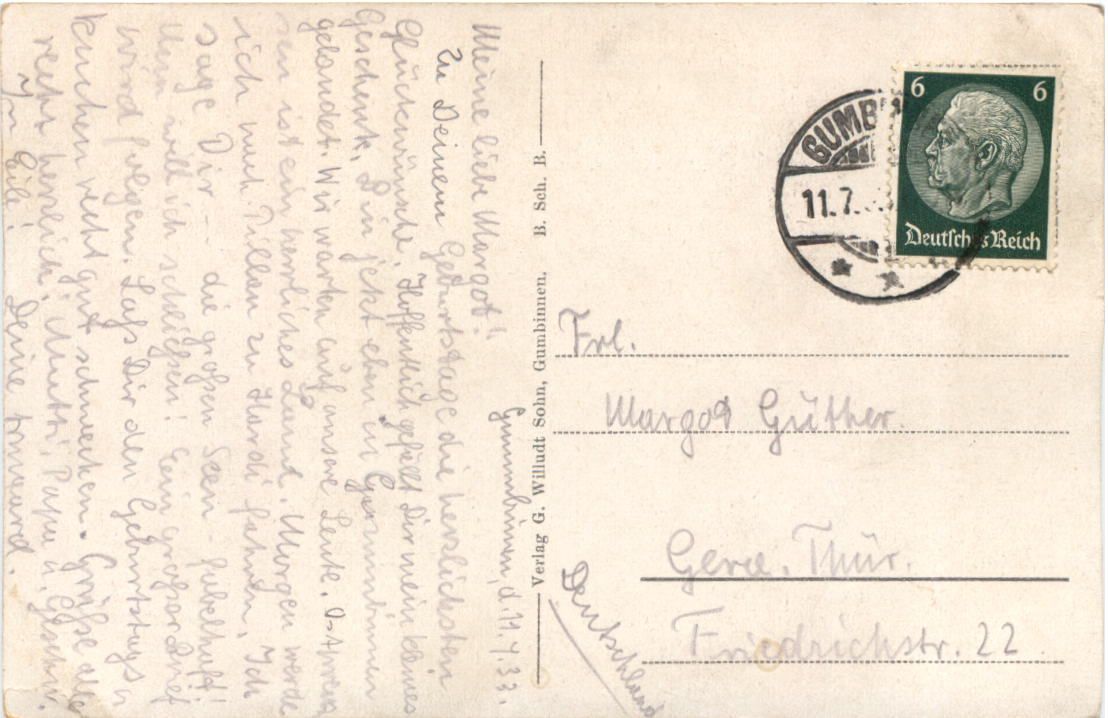 Gumbinnen, d. 11.7.33.
Meine liebe Margot!
Zu Deinem Geburtstage die herzlichsten
Glückwünsche. Hoffentlich gefällt Dir mein kleines
Geschenk. Bin jetzt eben in Gumbinnen
gelandet. Wir warten auf unsere Leute. Ostpreus
sen ist ein herrliches Land. Morgen werde
ich nach Pillau zu Hardi fahren. Ich
sage Dir -- die großen Seen - fabelhaft!
will ich schreiben! Ein großer Brief
wird folgen. Lass Dir den Geburtstags
kuchen recht gut schmecken. Grüße alle
recht herzlich, Mutti, Papa u. Geschw.
In Eile! Deine
Verlag G. Willudt Sohn, Gumbinnen. B. Sch. B.
GUMB
11.7.
6 6
Deutsches Reich
Frl.
Margot Güther.
Gera. Thür.
Friedrichstr. 22
Deutschland